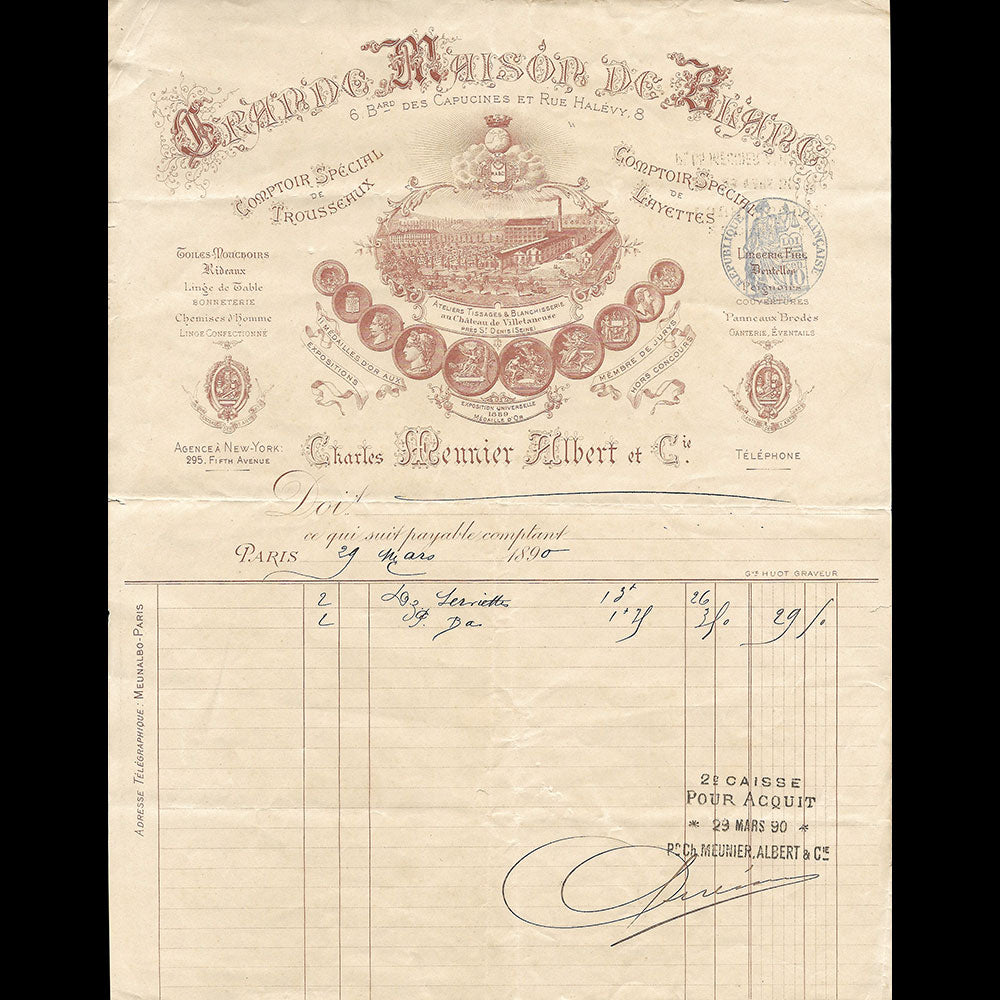 GRANDE MAISON DE BLANC
6, BARD DES CAPUCINES ET RUE HALÉVY, 8
COMPTOIR SPÉCIAL
DE
TROUSSEAUX
COMPTOIR SPÉCIAL
DE
LAYETTES
RÉPUBLIQUE FRANÇAISE
LOI
TOILES-MOUCHOIRS
RIDEAUX
LINGE DE TABLE
BONNETERIE
CHEMISES D'HOMME
LINGE CONFECTIONNÉ
LINGERIE FINE
DENTELLES
PEIGNOIRS
COUVERTURES
PANNEAUX BRODÉS
GANTERIE, ÉVENTAILS
ATELIERS TISSAGES & BLANCHISSERIE
au Château de Villetaneuse
PRÈS ST DENIS (SEINE)
MÉDAILLES D'OR AUX
EXPOSITIONS
MEMBRE DE JURYS
HORS CONCOURS
EXPOSITION UNIVERSELLE
1889
MÉDAILLE D'OR
AGENCE À NEW-YORK:
295, FIFTH AVENUE
Charles Meunier Albert et Cie.
TÉLÉPHONE
Doit
ce qui suit payable comptant
PARIS 29 Mars 1890
GVE HUOT GRAVEUR
2 Dz Serviettes 13f 26
2 P. Bas 1f75 3/50 29/50
ADRESSE TÉLÉGRAPHIQUE: MEUNALBO-PARIS
2E CAISSE
POUR ACQUIT
* 29 MARS 90 *
PR CH. MEUNIER, ALBERT & CIE